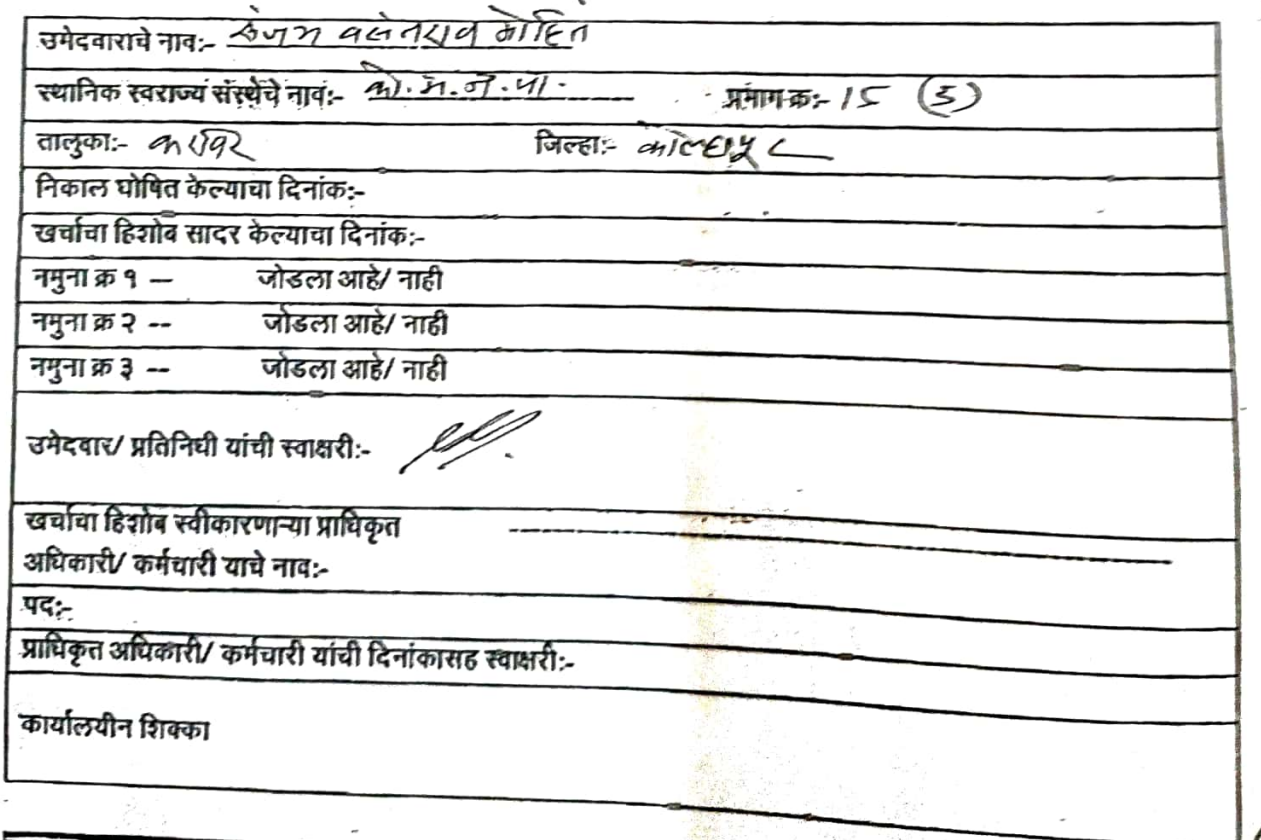 उमेदवाराचे नाव:- संजय वसंतराव मोहिते
स्थानिक स्वराज्यं संस्थेचे नावं:- को.म.न.पा. प्रभाग क्र:- 15 (ड)
तालुका:- करवीर जिल्हा:- कोल्हापूर
निकाल घोषित केल्याचा दिनांक:-
खर्चाचा हिशोब सादर केल्याचा दिनांक:-
नमुना क्र १ -- जोडला आहे/ नाही
नमुना क्र २ -- जोडला आहे/ नाही
नमुना क्र ३ -- जोडला आहे/ नाही
उमेदवार/ प्रतिनिधी यांची स्वाक्षरी:-
खर्चाचा हिशोब स्वीकारणाऱ्या प्राधिकृत
अधिकारी/ कर्मचारी याचे नाव:-
पद:-
प्राधिकृत अधिकारी/ कर्मचारी यांची दिनांकासह स्वाक्षरी:-
कार्यालयीन शिक्का